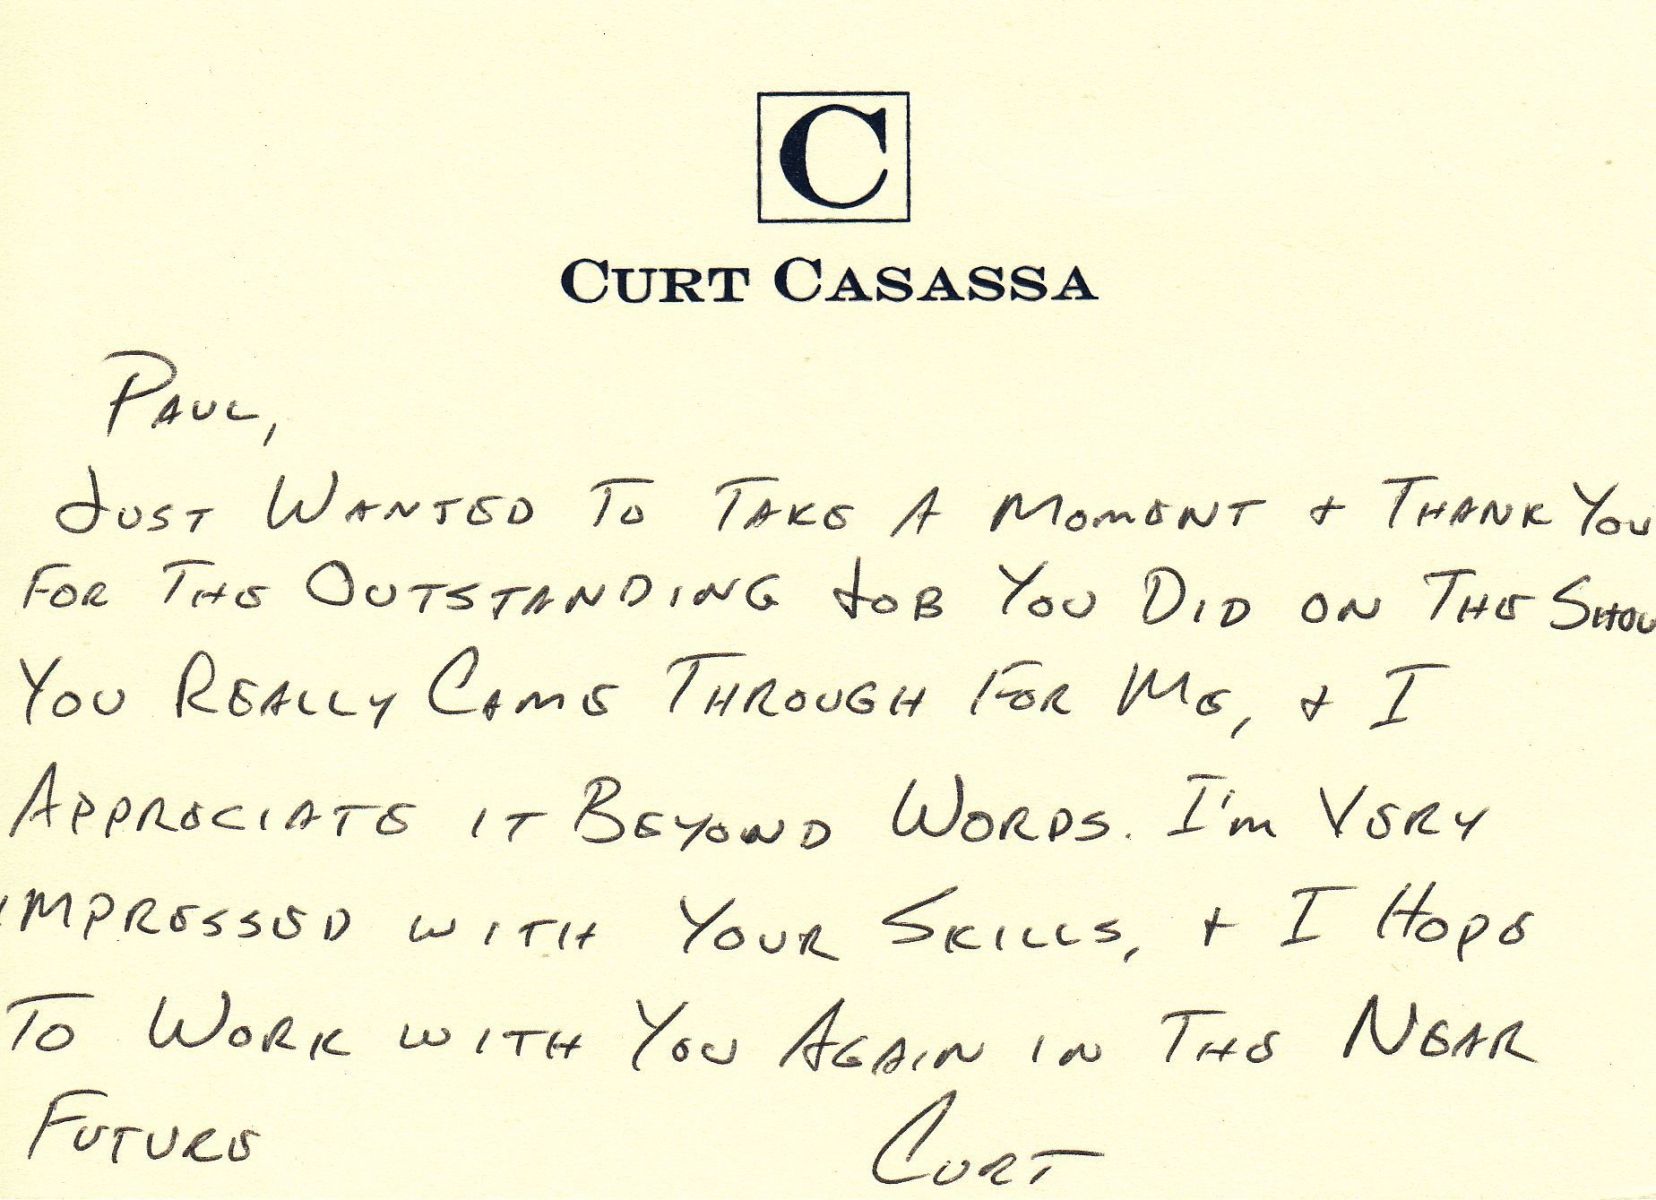 C
CURT CASASSA
PAUL,
JUST WANTED TO TAKE A MOMENT & THANK YOU
FOR THE OUTSTANDING JOB YOU DID ON THE SHOW
YOU REALLY CAME THROUGH FOR ME, & I
APPRECIATE IT BEYOND WORDS. I'm VERY
IMPRESSED WITH YOUR SKILLS, & I HOPE
TO WORK WITH YOU AGAIN IN THE NEAR
FUTURE
CURT